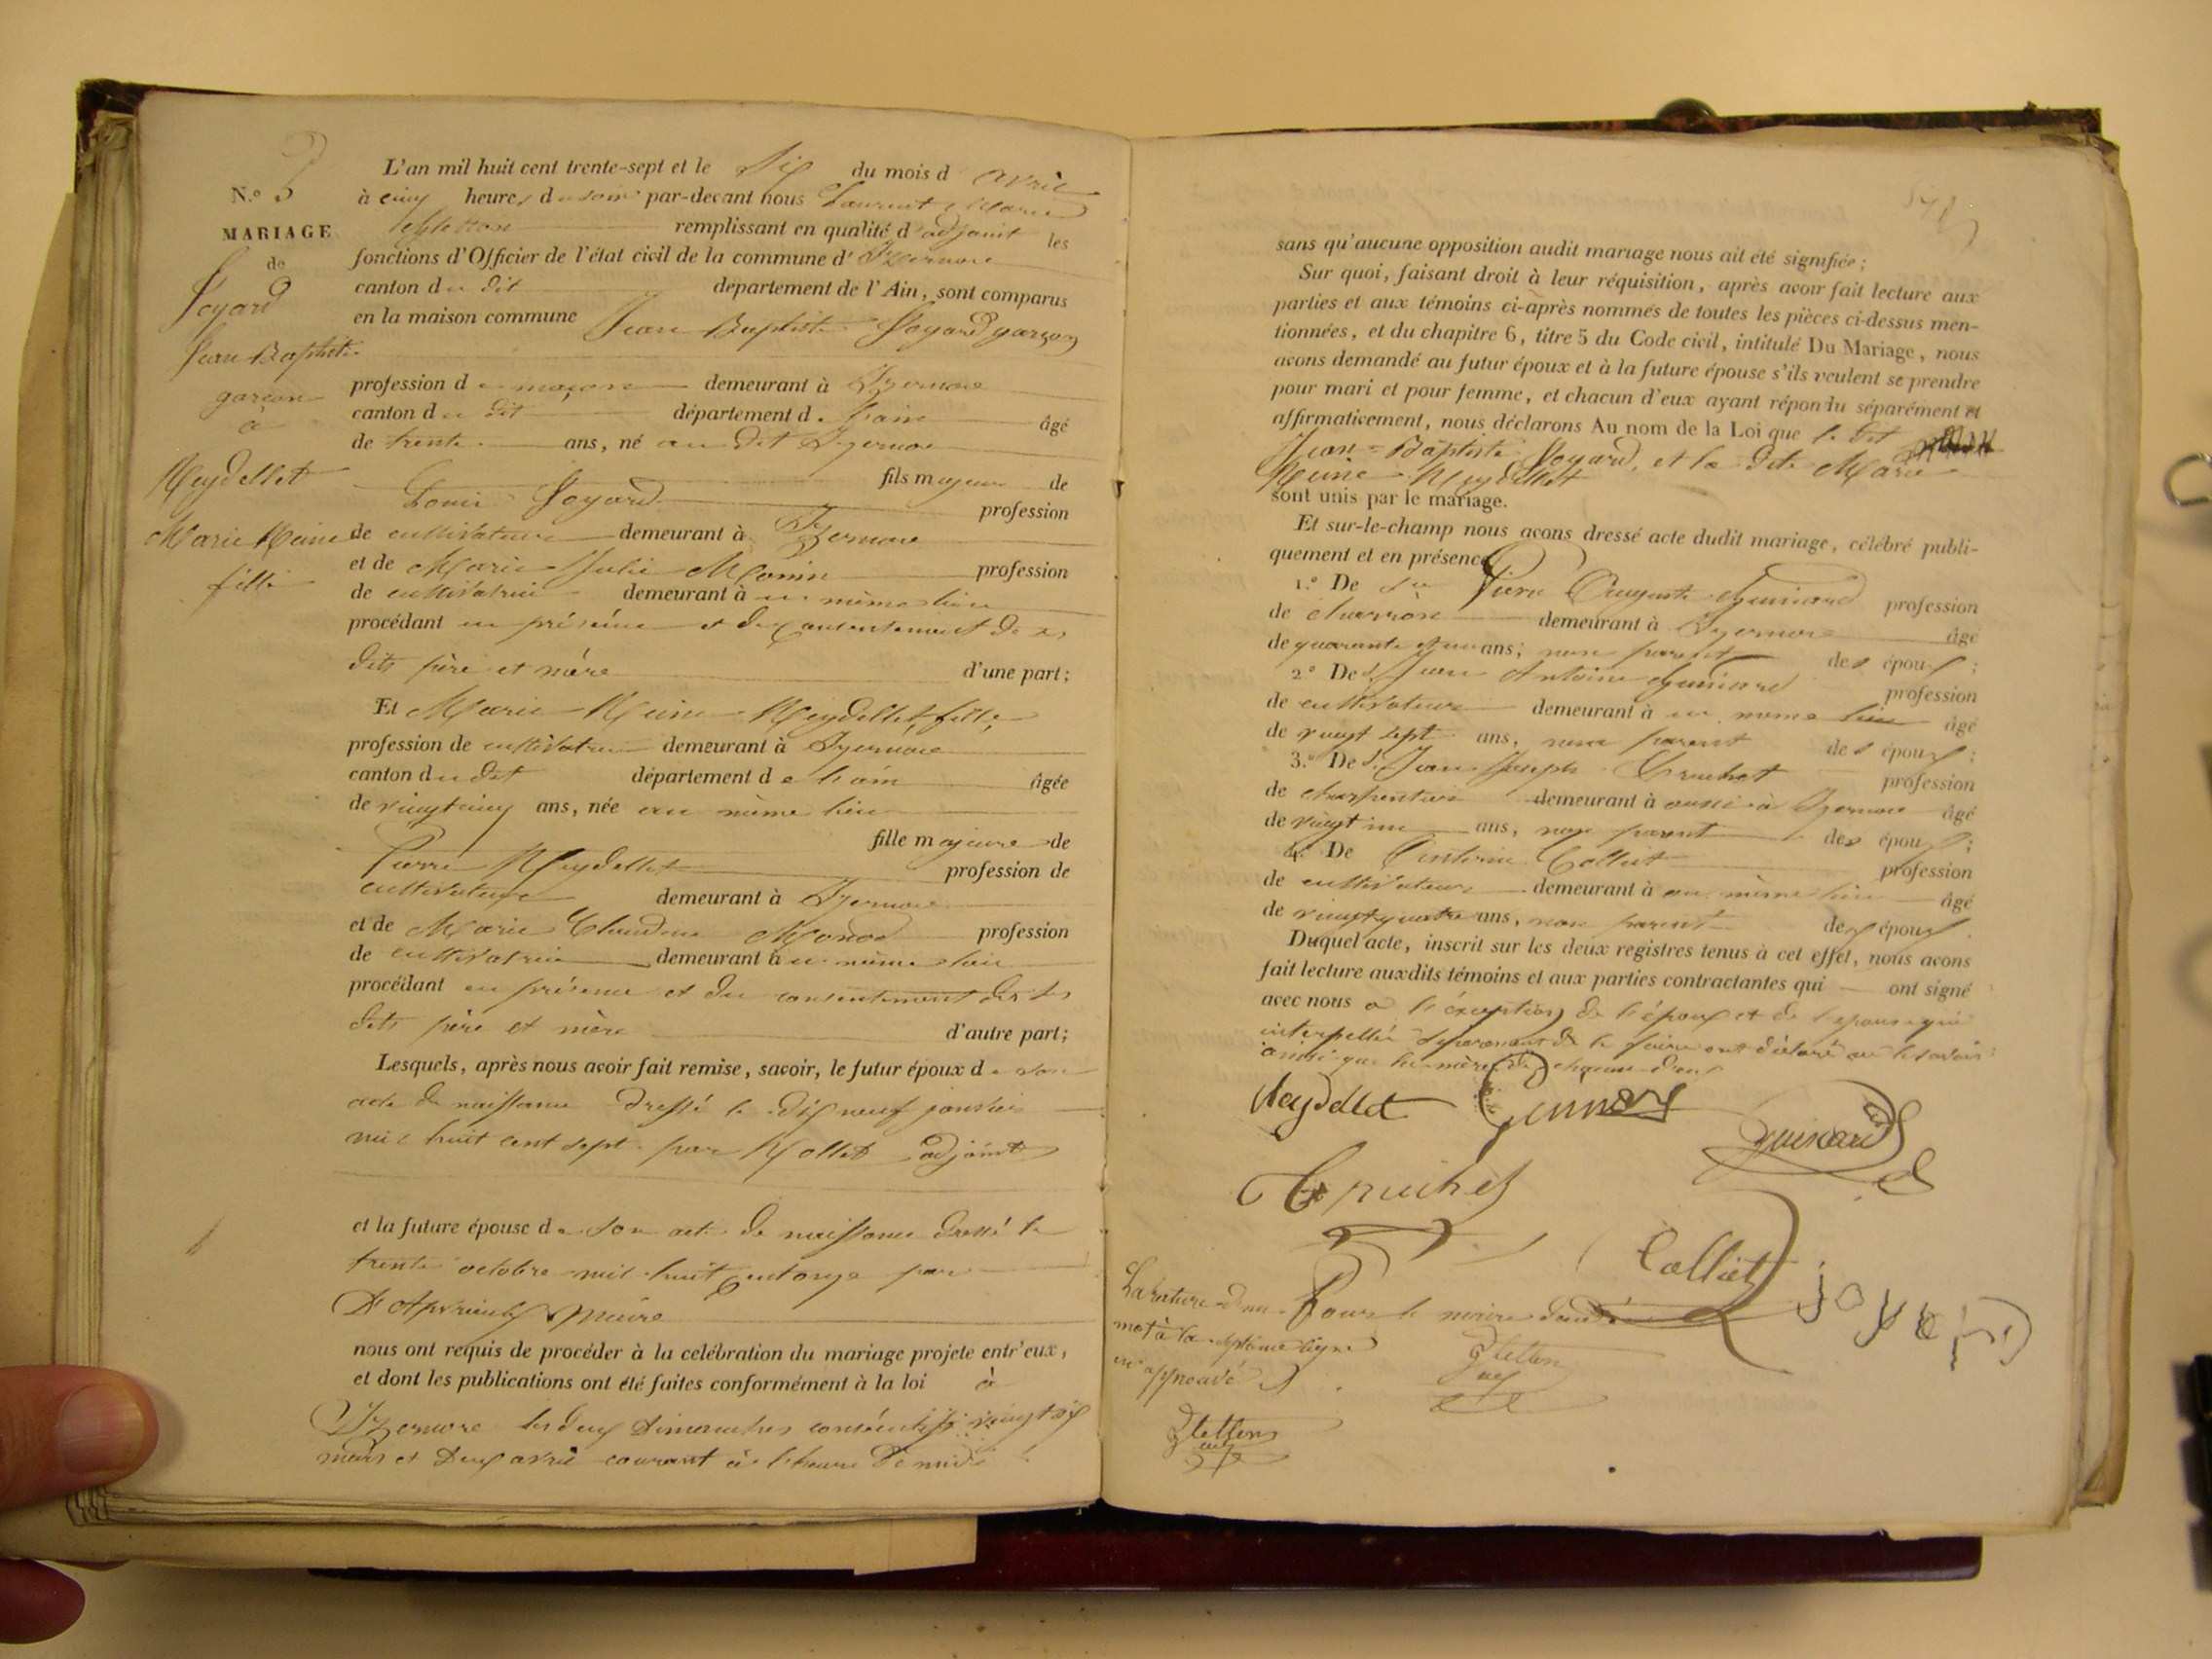 N.o 3
MARIAGE
de
Joyard
Jean Baptiste
garcon
à
Meydellet
Marie Reine
fille
L'an mil huit cent trente-sept et le six du mois d avril
à cinq heures du soir par-devant nous Laurent Marie
remplissant en qualité d'adjoint les
fonctions d'Officier de l'état civil de la commune d'Izernore
canton du dit département de l'Ain, sont comparus
en la maison commune Jean Baptiste Joyard garçon
profession de maçon demeurant à Izernore
canton du dit département de l'ain âgé
de trente ans, né au dit Izernore
fils majeur de
Louis Joyard profession
de cultivateur demeurant à Izernore
et de Marie Julie Monin profession
de cultivatrice demeurant à au même lieu
procédant en présence et du consentement de ses
dits père et mère d'une part;
Et Marie Reine Meydellet, fille,
profession de cultivatrice demeurant à Izernore
canton du dit département de l'ain âgée
de vingt cinq ans, née au même lieu
fille majeure de
Pierre Meydellet profession de
cultivateur demeurant à Izernore
et de Marie Claudine Monod profession
de cultivatrice demeurant à au même lieu
procédant en présence et du consentement des ses
dits père et mère d'autre part;
Lesquels, après nous avoir fait remise, savoir, le futur époux de son
acte de naissance dressé le dix neuf janvier
mil huit cent sept par Mollet adjoint
et la future épouse de son acte de naissance dressé le
trente octobre mil huit cent onze par
maire
nous ont requis de procéder à la celébration du mariage projeté entr'eux,
et dont les publications ont été faites conformément à la loi à
Izernore les deux dimanches consécutifs vingt six
mars et deux avril courant à l'heure de midi
sans qu'aucune opposition audit mariage nous ait été signifiée;
Sur quoi, faisant droit à leur réquisition, après avoir fait lecture aux
parties et aux témoins ci-après nommés de toutes les pièces ci-dessus men-
tionnées, et du chapitre 6, titre 5 du Code civil, intitulé Du Mariage, nous
avons demandé au futur époux et à la future épouse s'ils veulent se prendre
pour mari et pour femme, et chacun d'eux ayant répondu séparément et
affirmativement, nous déclarons Au nom de la Loi que le dit
Jean-Baptiste Joyard, et la dite Marie
Reine Meydellet
sont unis par le mariage.
Et sur-le-champ nous avons dressé acte dudit mariage, célébré publi-
quement et en présence
1.o De Sr Pierre Auguste Guinard profession
de charron demeurant à Izernore âgé
de quarante et un ans; non parent des époux;
2.o De S. Jean Antoine Guinard profession
de cultivateur demeurant à au même lieu âgé
de vingt sept ans, non parent des époux;
3.o De S. Jean Joseph Cruchet profession
de charpentier demeurant à aussi à Izernore âgé
de vingt un ans, non parent des époux;
4.o De Antoine Colliet profession
de cultivateur demeurant à au même lieu âgé
de vingt quatre ans, non parent des époux.
Duquel acte, inscrit sur les deux registres tenus à cet effet, nous avons
fait lecture auxdits témoins et aux parties contractantes qui ont signé
avec nous a l'exception de l'époux et de l'épouse qui
interpellés séparément de le faire ont déclaré ne le savoir
ainsi que les mères de chacun d'eux
Meydellet Guinard
guinard
Cruchet
Colliet
joyard
Pour le maire
La rature d'un
mot à la septième ligne
approuvé